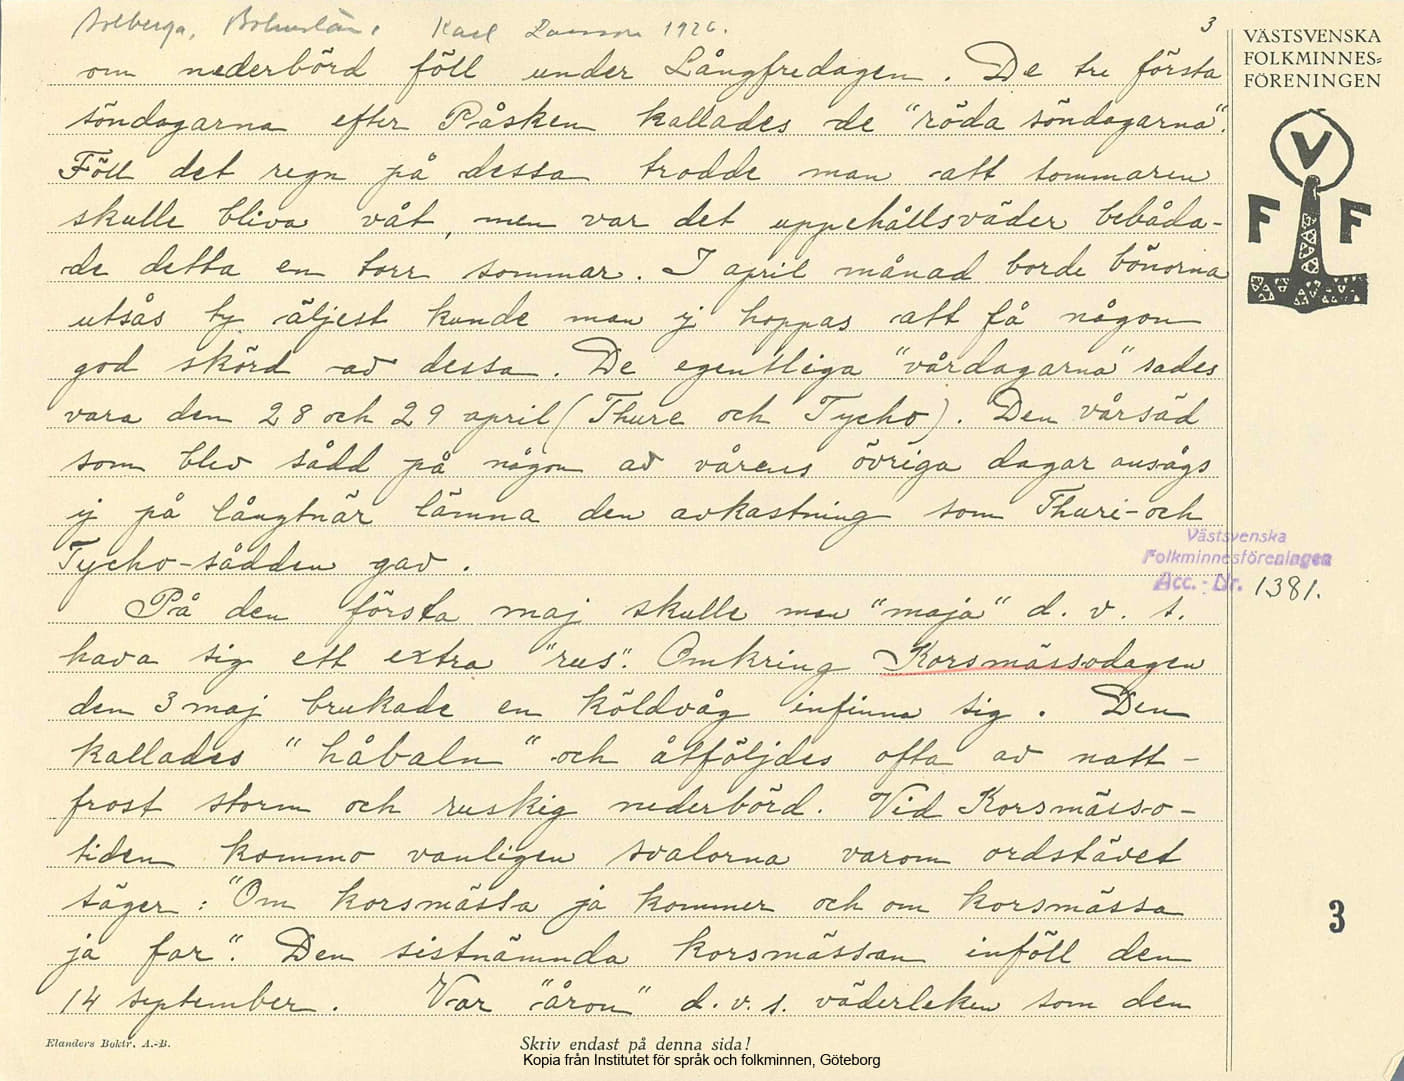 Solberga, Bohuslän. Karl 1926.
3
VÄSTSVENSKA
FOLKMINNES=
FÖRENINGEN
V
F F
om nederbörd föll under Långfredagen. De tre första
söndagarna efter Påsken kallades de "röda söndagarna".
Föll det regn på dessa trodde man att sommaren
skulle bliva våt, men var det uppehållsväder bebåda-
de detta en torr sommar. I april månad borde bönorna
utsås ty äljest kunde man ej hoppas att få någon
god skörd av dessa. De egentliga "vårdagarna" sades
vara den 28 och 29 april (Thure och Tycho). Den vårsäd
som blev sådd på någon av vårens övriga dagar ansågs
ej på långtnär lämna den avkastning som Thuri-och
Tycho-sådden gav.
Västsvenska
Folkminnesföreningen
Acc. - Nr. 1381.
På den första maj skulle man "maja" d. v. s.
hava sig ett extra "rus". Omkring Korsmässodagen
den 3 maj brukade en köldvåg infinna sig. Den
kallades "håbaln" och åtföljdes ofta av natt-
frost storm och ruskig nederbörd. Vid Korsmässo-
tiden kommo vanligen svalorna varom ordstävet
säger: "Om korsmässa ja kommer och om korsmässa
ja far". Den sistnämnda korsmässan inföll den
14 september. Var "åron" d. v. s. väderleken som den
3
Elanders Boktr. A.-B.
Skriv endast på denna sida!
Kopia från Institutet för språk och folkminnen, Göteborg